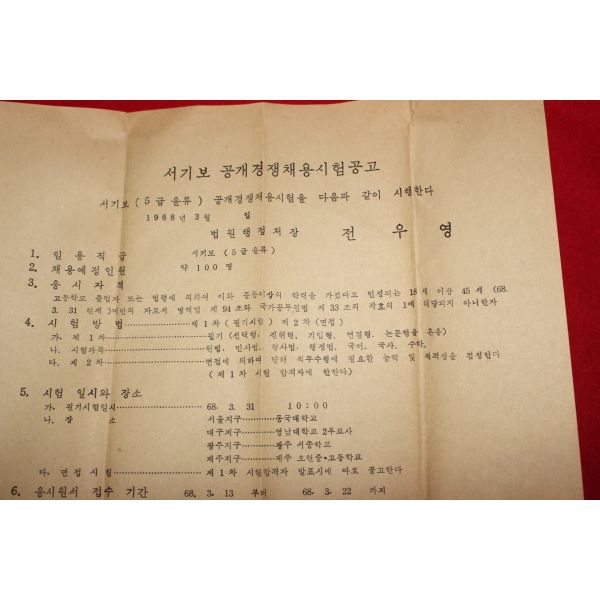 서기보 공개경쟁채용시험공고
서기보 (5급을류) 공개경쟁채용시험을 다음과 같이 시행한다
1968년 3월 일
법원행정처장 전우영
1. 임용직급 서기보 (5급을류)
2. 채용예정인원 약 100 명
3. 응시자격
고등학교 졸업자 또는 법령에 의하여 이와 동등이상의 학력을 가졌다고 인정되는 18세 이상 45세 (68.
3. 31 현재) 미만의 자로서 병역법 제 94조와 국가공무원법 제 33조의 각호의 1에 해당되지 아니한자
4. 시험방법……………제 1차 (필기시험) 제 2차 (면접)
가. 제 1차……………필기 (선택형, 진위형, 기입형, 연결형, 논문형을 혼용)
나. 시험과목……………헌법, 민사법, 형사법, 행정법, 국어, 국사, 수학,
다. 제 2차……………면접에 의하여 당해 직무수행에 필요한 능력 및 적격성을 검정한다
(제 1차 시험 합격자에 한한다)
5. 시험 일시와 장소
가. 필기시험일시……………68. 3. 31 10:00
나. 장소 서울지구……동국대학교
대구지구……영남대학교 2부교사
광주지구……광주 서중학교
제주지구……제주 오현중•고등학교
다. 면접시험……………제 1차 시험합격자 발표시에 따로 공고한다
6. 응시원서 접수 기간 68. 3. 13 부터 68. 3. 22 까지